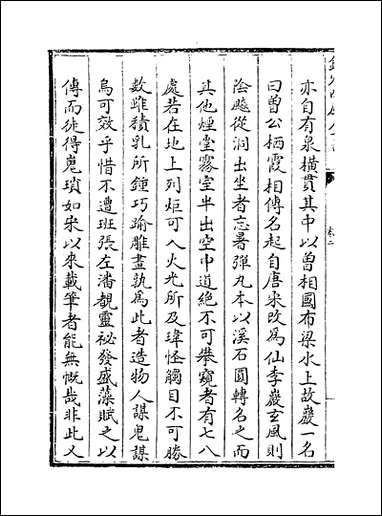 亦自有泉橫貫其中以曾相國布梁水上故巖一名
曰曾公栖霞相傳名起自唐宋改為仙李巖玄風則
陰飈從洞出坐者忘暑彈丸本以溪石圓轉名之而
其他煙堂霧室半出空中道絶不可攀窺者有七八
處若在地上列炬可入火光所及瑋怪觸目不可勝
數雖積乳所鍾巧踰雕畫孰為此者造物人謀鬼謀
烏可效乎惜不遭班張左潘覩靈祕發盛藻賦之以
傳而徒得嵬瑣如宋以來載筆者能無慨哉非此又